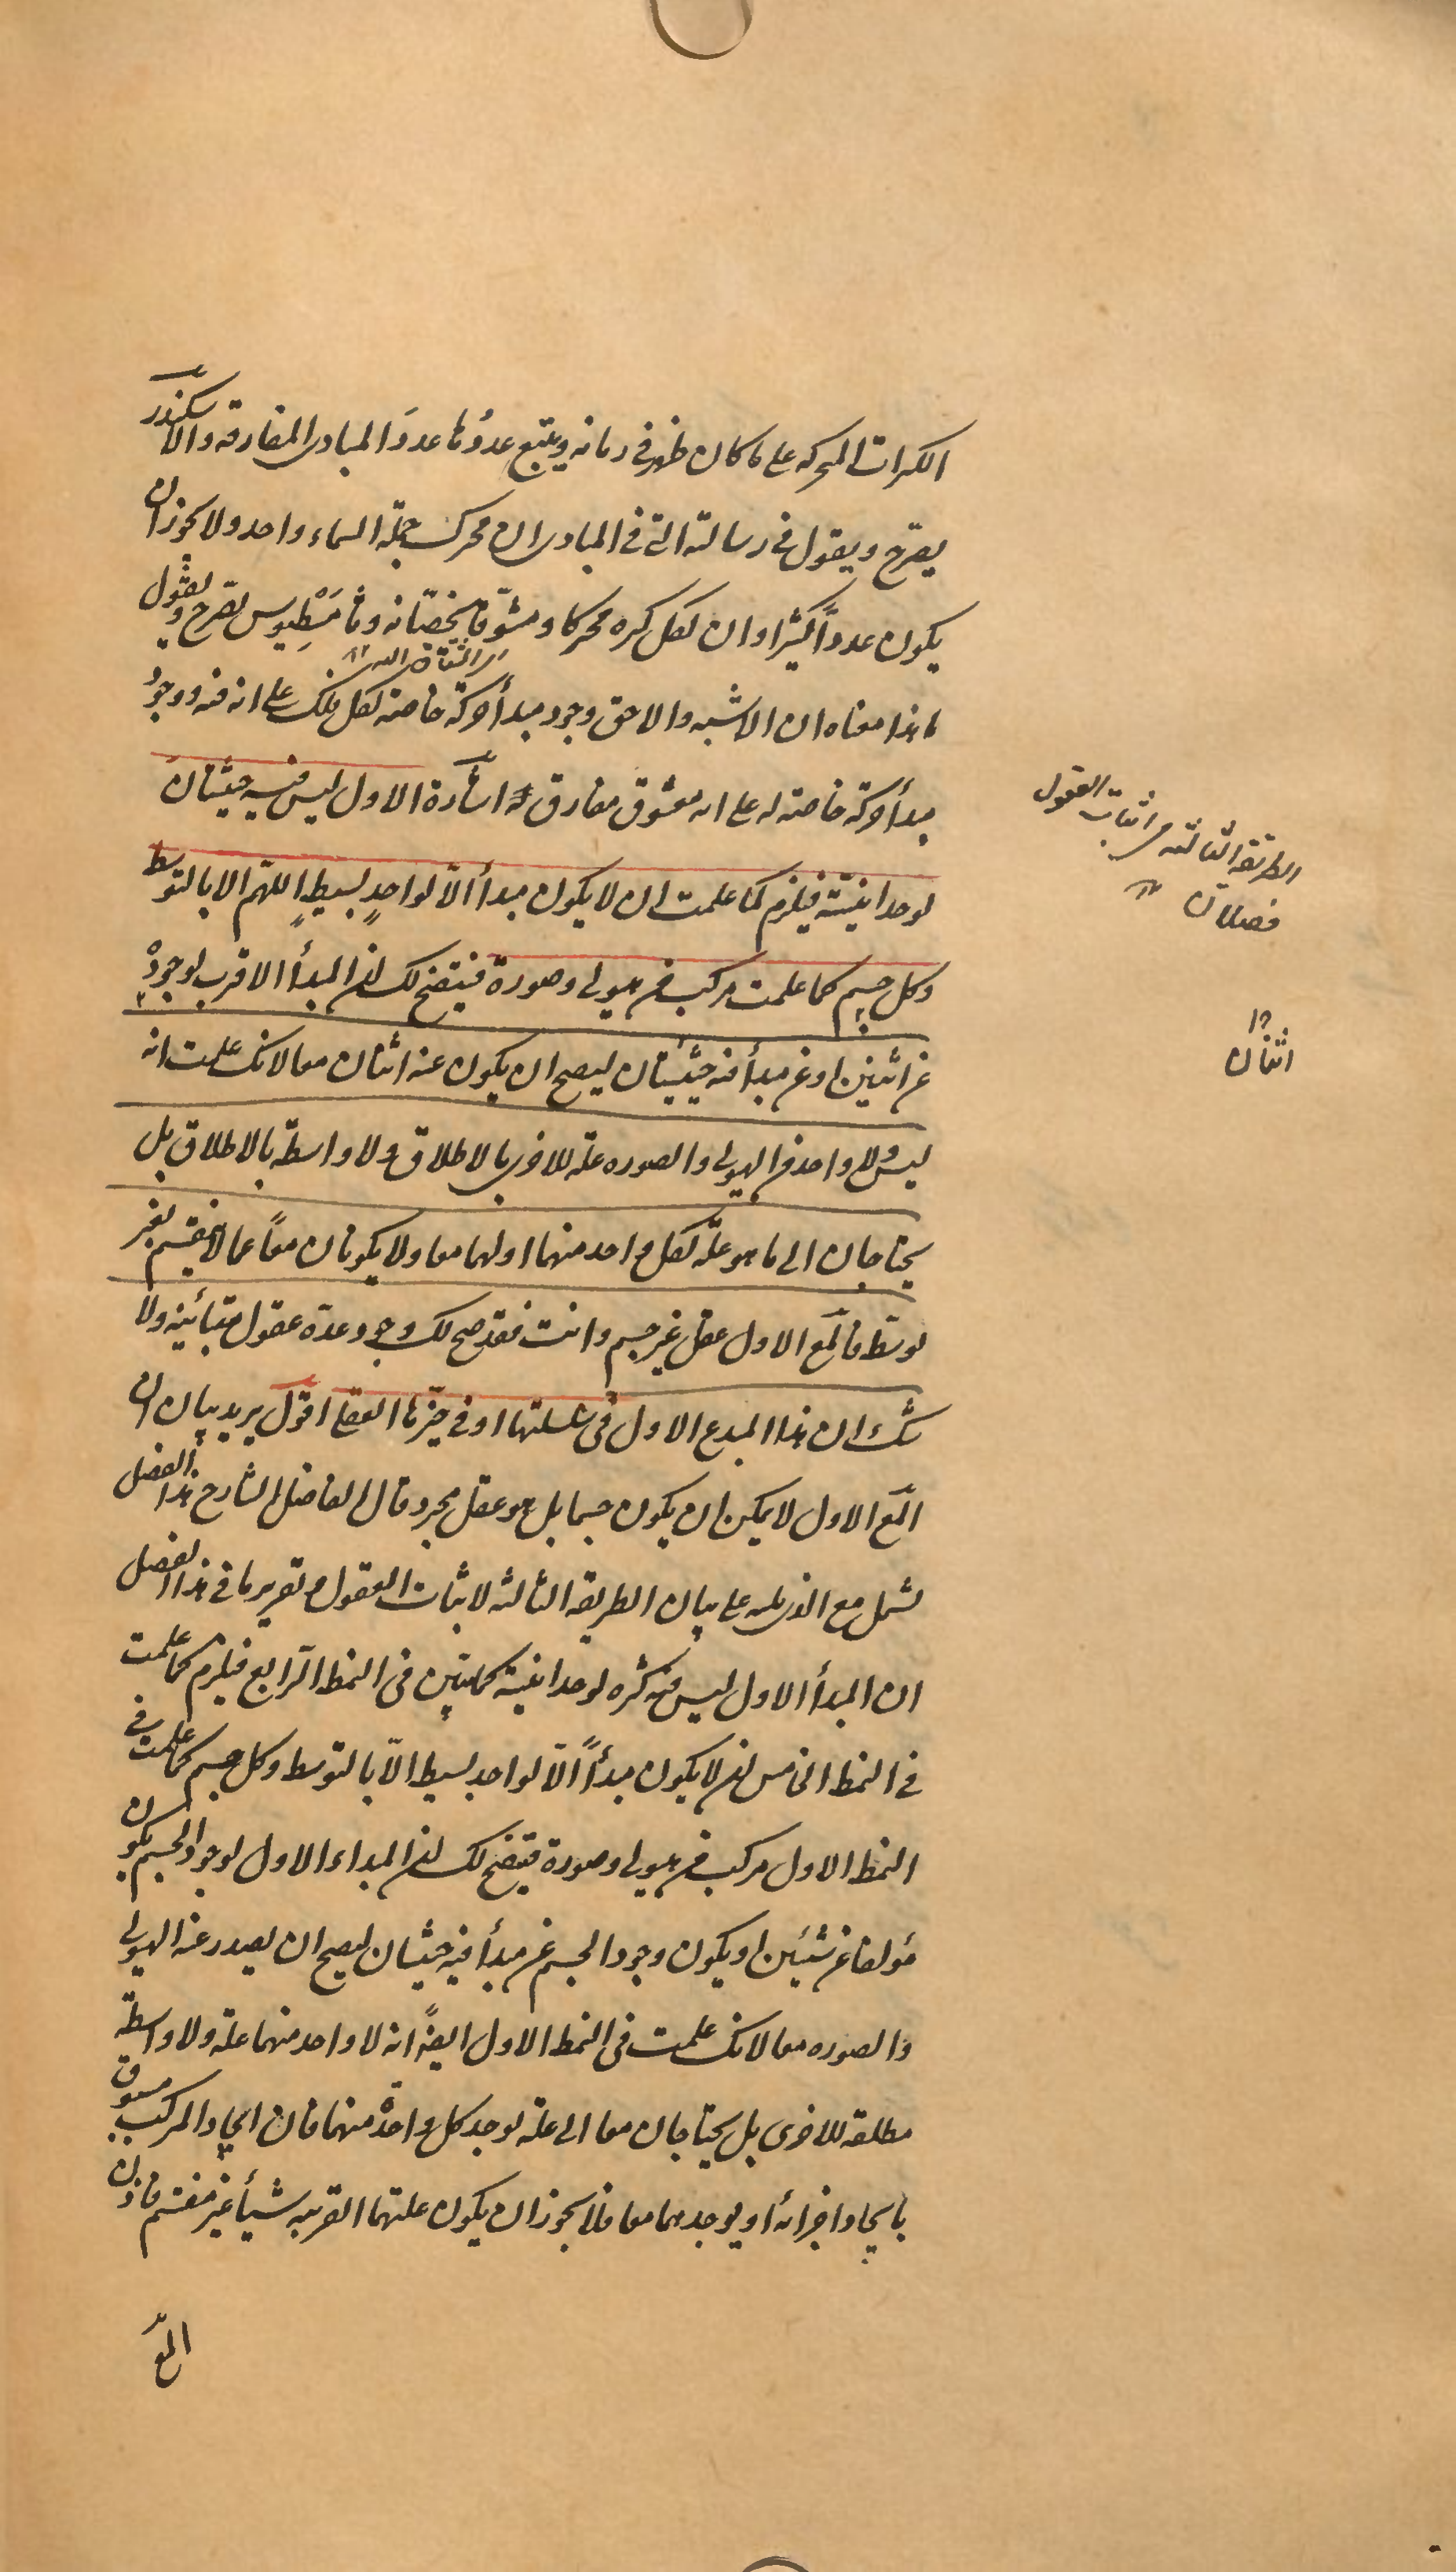 الكرات المتحركة على ما كان ظهر في زمانه ويتبع عددُها عددَ المبادى المفارقة والاسكندر
يصرح ويقول في رسالته التي في المبادى ان محرك جملة السماء واحد ولا يجوز ان
يكون عدداً كثيرا وان لكل كرة محركا ومشوّقا يخصّانه وثامسْطِيوس يصرح ويقول
ما هذا معناه ان الاشبه والاحق وجود مبدأ حركة خاصة لكل فلك على انه فيه ووجودُ
مبدأ حركة خاصة له على انه معشوق مفارق اشارة الاول ليس فيه حيثيتان
لوحدانيّته فيلزم كما علمت ان لا يكون مبدأ الّا لواحدٍ بسيطٍ اللّهم الا بالتوسط
وكل جسم كما علمت مركب من هيولى وصورة فيتضح لك ان المبدأ الاقرب لوجوده
عن اثنين او عن مبدأ فيه حيثيتان ليصح ان يكون عنه اثنان معا لانك علمت انه
ليس ولا واحد من الهيولى والصورة علة للاخرى بالاطلاق ولا واسطة بالاطلاق بل
يحتاجان الى ما هو علّة لكل واحد منهما او لهما معا ولا يكونان معاً عما لا ينقسم بغير
توسّط فالمع الاول عقل غير جسم وانت فقد صح لك وجود عدة عقول متباينة ولا
شك ان هذا المبدع الاول في سلسلتها او في حيّزها العقلى اقول يريد بيان ان
المع الاول لا يمكن ان يكون جسما بل هو عقل مجرد قال الفاضل الشارح هذا الفصل
يشمل مع الذى يليه على بيان الطريقة الثالثة لاثبات العقول وتقريرها في هذا الفصل
ان المبدأ الاول ليس فيه كثرة لوحدانيّته كما تبين في النمط الرّابع فيلزم كما علمت
في النمط الخامس ان لا يكون مبدأً الّا لواحد بسيط الّا بالتوسط وكل جسم كما علمت في
النمط الاول مركب من هيولى وصورة فيتضح لك ان المبداء الاول لوجود الجسم يكون
مؤلفا عن شيئين او يكون وجود الجسم عن مبدأ فيه حيثيتان ليصح ان يصدر عنه الهيولى
والصورة معا لانك علمت في النمط الاول ايضاً انه لا واحد منهما علة ولا واسطة
مطلقة للاخرى بل يحتاجان معا الى علة توجد كل واحدة منهما فان ايجاد المركب مسبوق
بايجاد اجزائه او يوجدهما معا فلا يجوز ان يكون علتهما القريبة شيأ غير منقسم فاذن
المع
الطريقة الثالثة في اثبات العقول
فصلان
اثنان